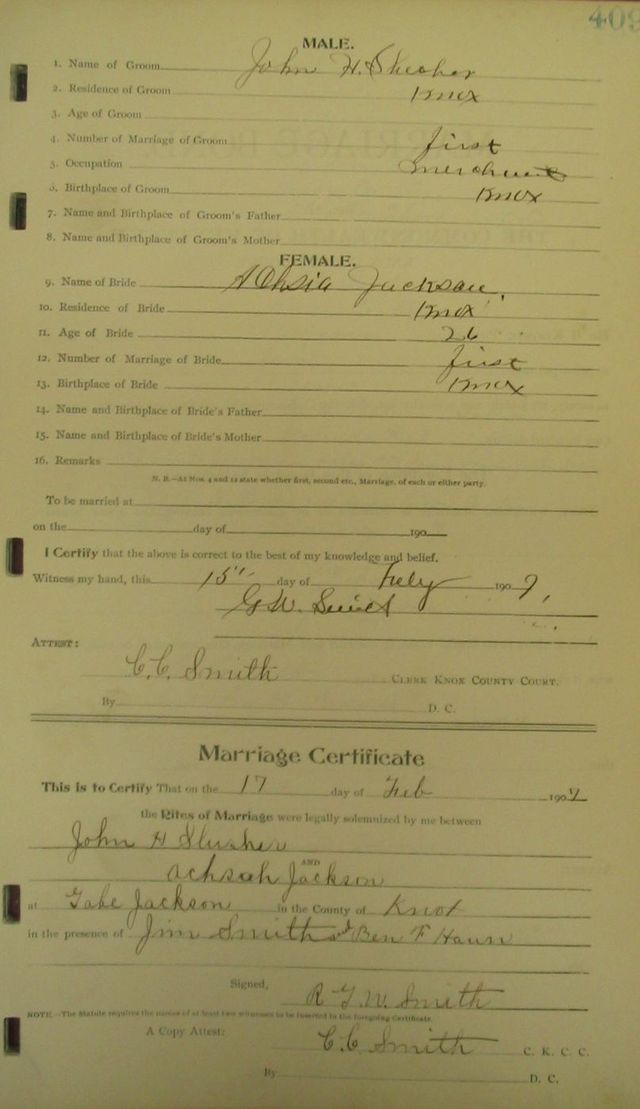 409
MALE.
1. Name of Groom John H. Slusher
2. Residence of Groom Knox
3. Age of Groom
4. Number of Marriage of Groom first
5. Occupation merchant
6. Birthplace of Groom Knox
7. Name and Birthplace of Groom's Father
8. Name and Birthplace of Groom's Mother
FEMALE.
9. Name of Bride Jackson.
10. Residence of Bride Knox
11. Age of Bride 26
12. Number of Marriage of Bride first
13. Birthplace of Bride Knox
14. Name and Birthplace of Bride's Father
15. Name and Birthplace of Bride's Mother
16. Remarks
N. B.—At Nos. 4 and 12 state whether first, second etc., Marriage, of each or either party.
To be married at
on the day of 190
I Certify that the above is correct to the best of my knowledge and belief.
Witness my hand, this 15" day of Feby 1907,
G.W.
ATTEST:
C.C. Smith CLERK KNOX COUNTY COURT.
By D. C.
Marriage Certificate
This is to Certify That on the 17 day of Feb 1907
the Rites of Marriage were legally solemnized by me between
John H Slusher
AND
Achsah Jackson
at Gabe Jackson in the County of Knox
in the presence of Jim Smith and Ben F Hawn
Signed,
R G. W. Smith
NOTE.—The Statute requires the names of at least two witnesses to be inserted in the foregoing Certificate.
A Copy Attest: C.C. Smith C. K. C. C.
By D. C.